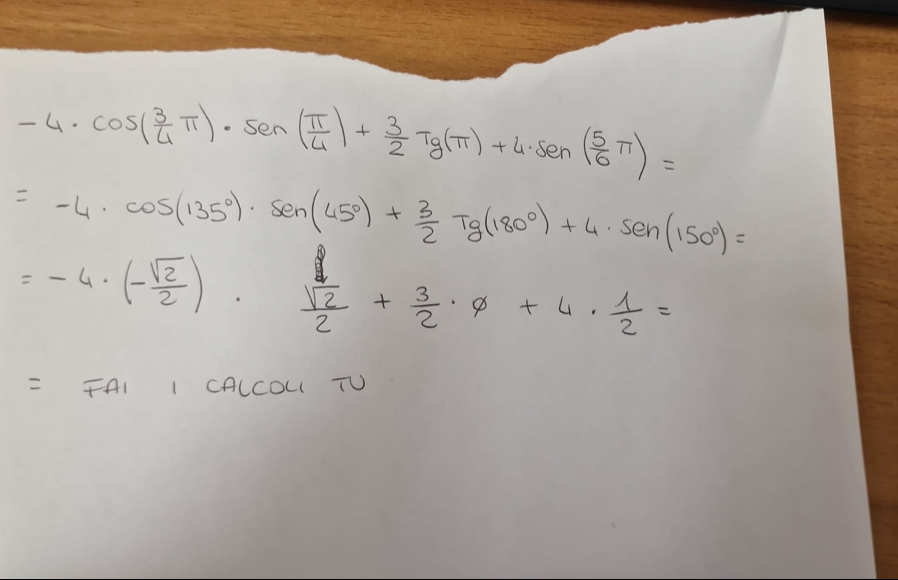 -4 · cos(3/4 π) · sen(π/4) + 3/2 Tg(π) + 4 · sen(5/6 π) =
= -4 · cos(135°) · sen(45°) + 3/2 Tg(180°) + 4 · sen(150°) =
= -4 · (-√2/2) · √2/2 + 3/2 · ø + 4 · 1/2 =
= FAI I CALCOLI TU